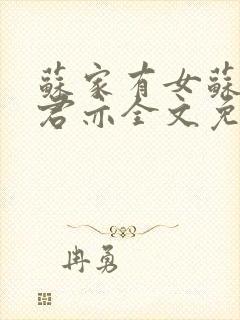 蘇家有女蘇
君亦全文免
冉勇